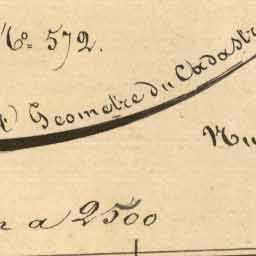 No. 572.
Géometre du Cadastr
Nu
a 2500